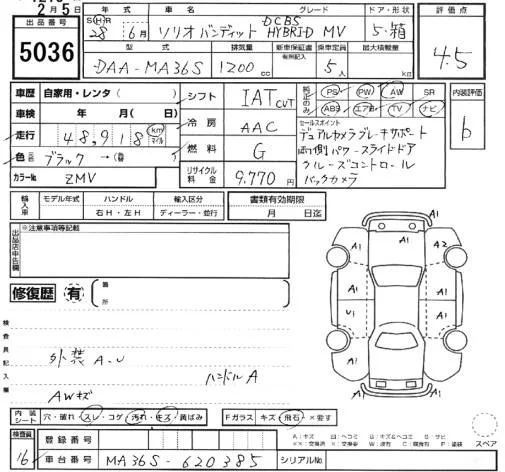 2月5日
出品番号
5036
年式
車名
グレード
ドア・形状
評価点
SHR
28年
6月
ソリオ バンディット DCBS HYBRID MV
5・箱
4.5
型式
排気量
新車保証書
有無記入
乗車定員
最大積載量
DAA-MA36S
1200 cc
5人
kg
車歴 自家用・レンタ( )
シフト
IAT CVT
純正のみ
PS PW AW SR
ABS エアB TV ナビ
内装評価
b
車検 年 月( 日)
冷房
AAC
セールスポイント
デュアルカメラブレーキサポート
両側パワースライドドア
クルーズコントロール
バックカメラ
走行 48,918 km マイル
燃料
G
色 ブラック →
カラーNo ZMV
リサイクル料金
9.770円
輸入車
モデル年式
ハンドル
右H・左H
輸入区分
ディーラー・並行
書類有効期限
月 日迄
出品店申告欄
※注意事項等記載
修復歴 有
箇所
検査員記入欄
外装 A・U
ハンドル A
AWキズ
A1
A1
A1
A2
A1
A1
U1
A1
A1
A1
内装シート
穴・破れ スレ・コゲ 汚れ・キズ 黄ばみ
Fガラス キズ 飛石 ×要す
A:キズ
スペア
検査員
16
登録番号
車台番号
MA36S-620385
シリアルNo